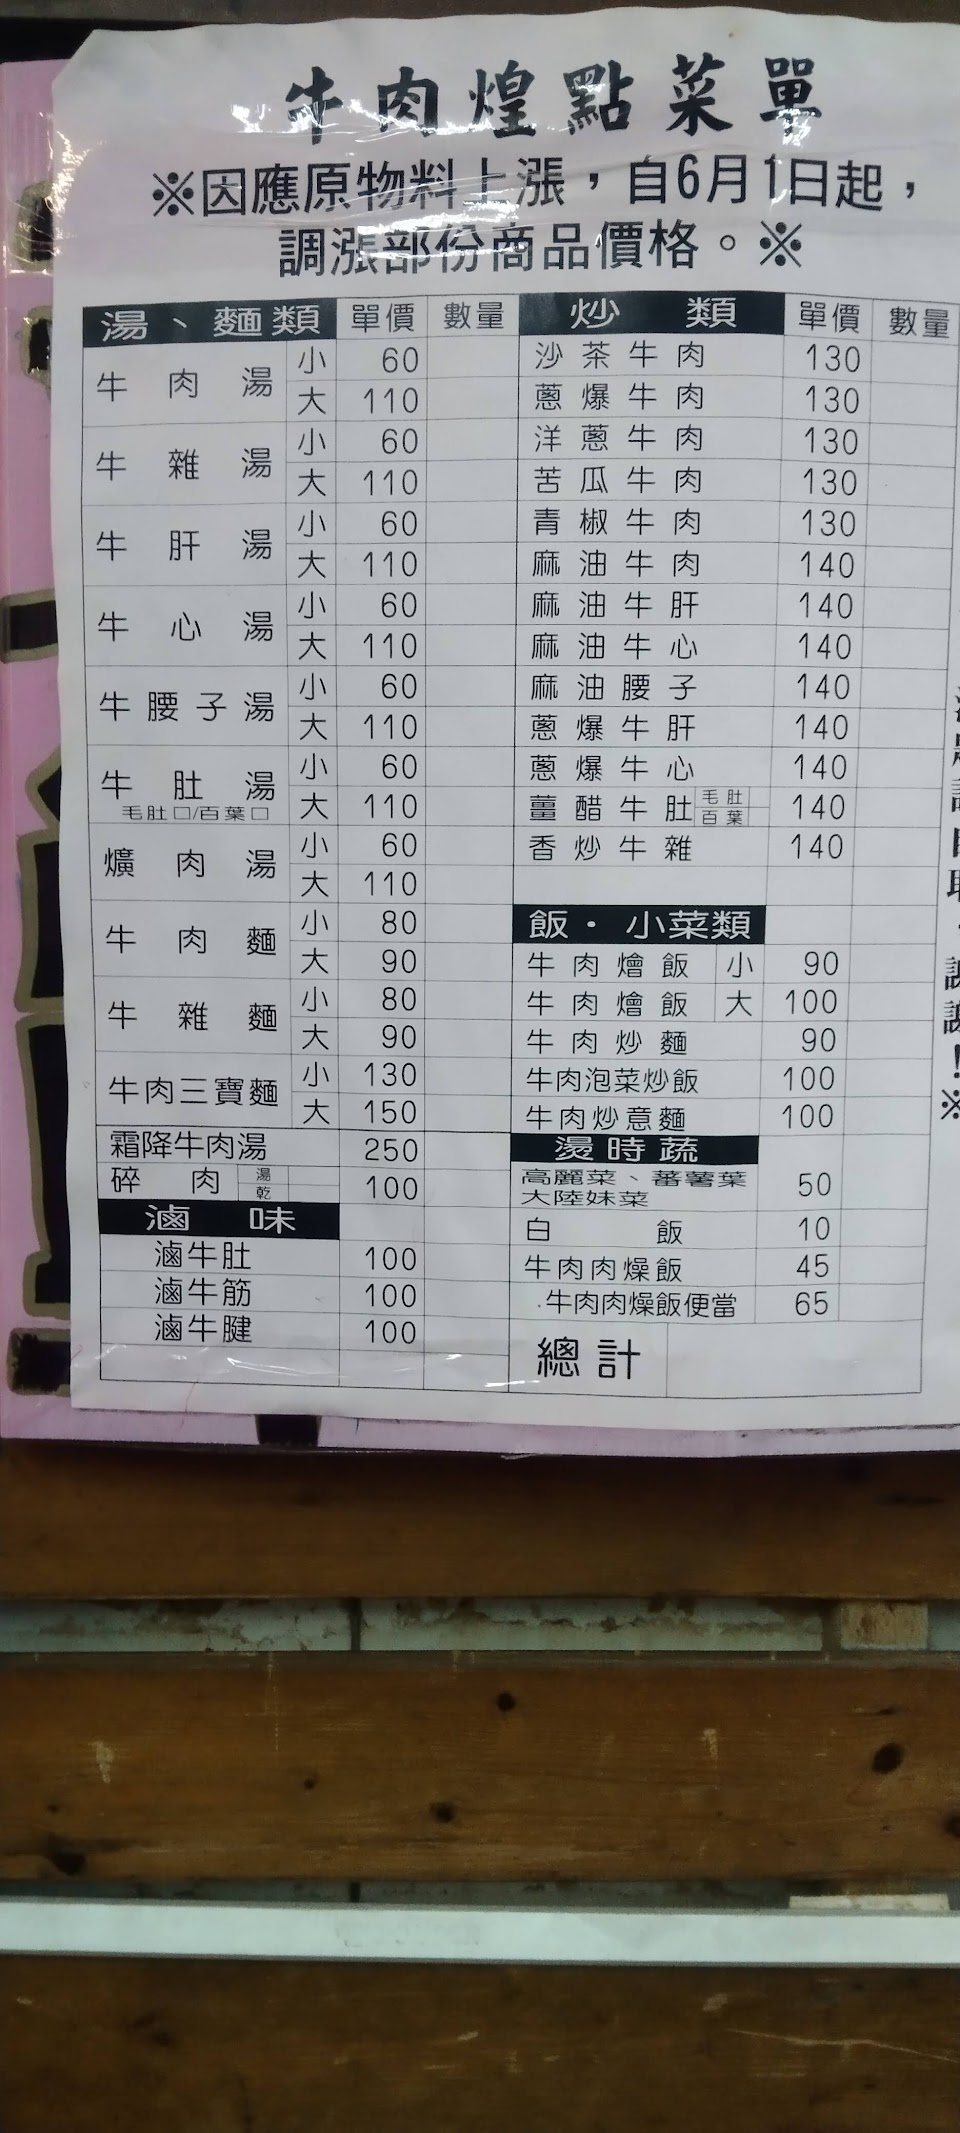 牛肉煌點菜單
※因應原物料上漲，自6月1日起，
調漲部份商品價格。※
湯、麵類 單價 數量
牛肉湯 小 60
大 110
牛雜湯 小 60
大 110
牛肝湯 小 60
大 110
牛心湯 小 60
大 110
牛腰子湯 小 60
大 110
牛肚湯 小 60
毛肚□/百葉□ 大 110
爌肉湯 小 60
大 110
牛肉麵 小 80
大 90
牛雜麵 小 80
大 90
牛肉三寶麵 小 130
大 150
霜降牛肉湯 250
碎肉 湯 乾 100
滷味
滷牛肚 100
滷牛筋 100
滷牛腱 100
炒類 單價 數量
沙茶牛肉 130
蔥爆牛肉 130
洋蔥牛肉 130
苦瓜牛肉 130
青椒牛肉 130
麻油牛肉 140
麻油牛肝 140
麻油牛心 140
麻油腰子 140
蔥爆牛肝 140
蔥爆牛心 140
薑醋牛肚 毛肚 百葉 140
香炒牛雜 140
飯・小菜類
牛肉燴飯 小 90
牛肉燴飯 大 100
牛肉炒麵 90
牛肉泡菜炒飯 100
牛肉炒意麵 100
燙時蔬
高麗菜、蕃薯葉
大陸妹菜 50
白飯 10
牛肉肉燥飯 45
牛肉肉燥飯便當 65
總計
謝謝！※